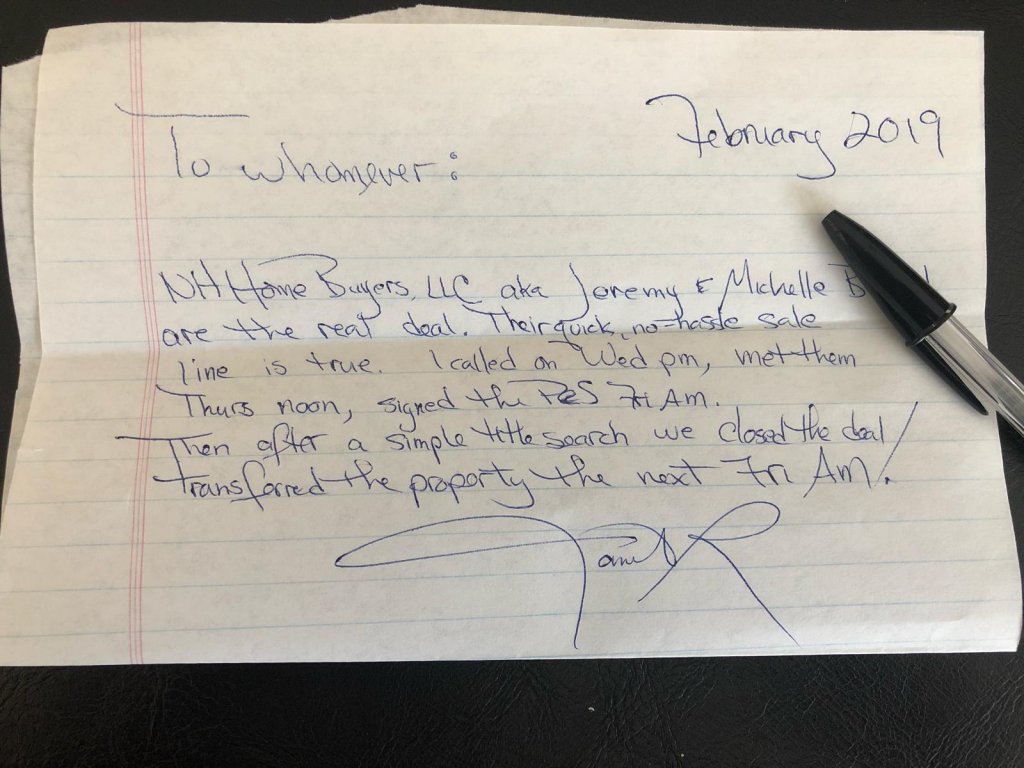 To whomever:
February 2019
NH Home Buyers, LLC aka Jeremy & Michelle
are the real deal. Their quick, no-hassle sale
line is true. I called on Wed pm, met them
Thurs noon, signed the P&S Fri Am.
Then after a simple title search we closed the deal/
transferred the property the next Fri AM!